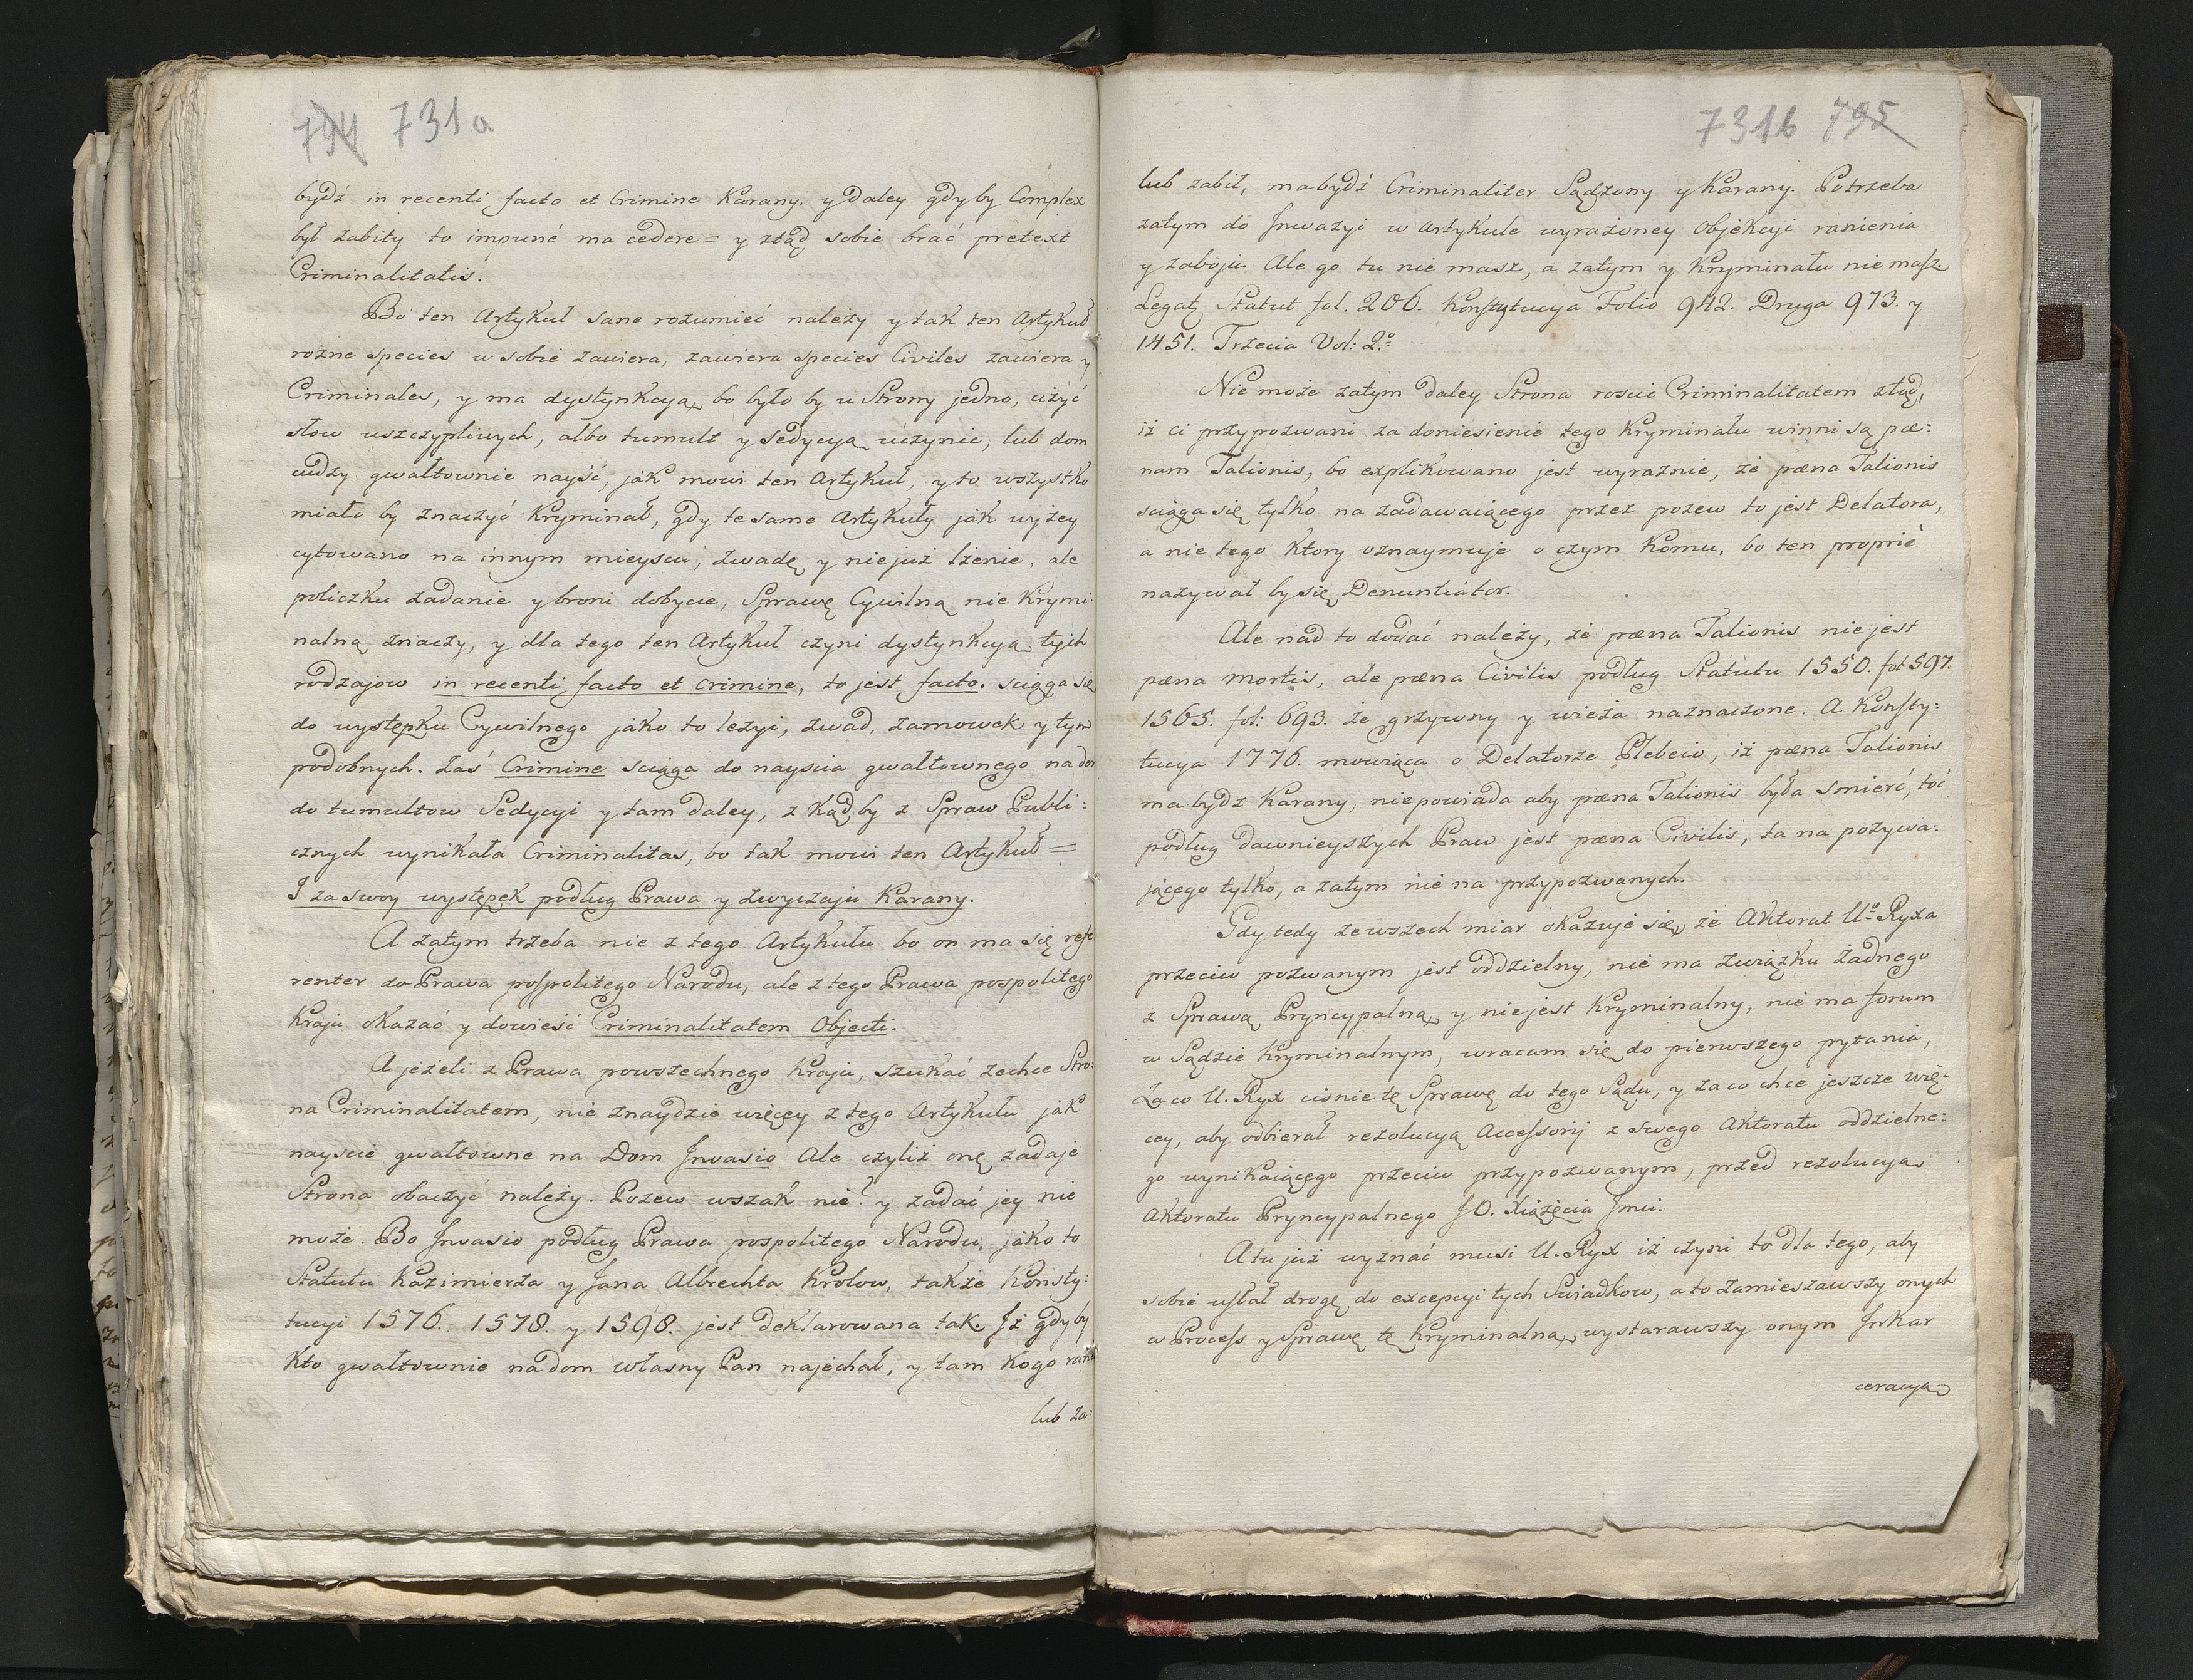 794 731a
bydź in recenti facto et Crimine Karany. y daley gdyby Complex
był zabity to impuné ma cedere = y ztąd sobie brać pretext
Criminalitatis.
Bo ten Artykuł sane rozumieć należy y tak ten Artykuł
rożne species w sobie zawiera, zawiera species Civiles zawiera y
Criminales, y ma dystynkcyą, bo było by u Strony jedno, użyć
słow uszczypliwych, albo tumult y sedycyą uczynić, lub dom
cudzy gwałtownie nayść, jak mowi ten Artykuł, y to wszystko
miało by znaczyć Kryminał, gdy te same Artykuły jak wyżey
cytowano na innym mieyscu, zwadę y nie już lżenie, ale
policzku zadanie y broni dobycie, Sprawę Cywilną nie Krymi:
nalną znaczy, y dla tego ten Artykuł czyni dystynkcyą tych
rodzajow in recenti facto et crimine, to jest facto. sciąga się
do występku Cywilnego jako to lezyi, zwad, zamowek y tym
podobnych. Zaś Crimine sciąga do nayscia gwałtownego na dom
do tumultow Sedycyi y tam daley, z kądby z Spraw Publi:
cznych wynikała Criminalitas, bo tak mowi ten Artykuł =
I za swoy występek podług Prawa y zwyczaju Karany.
A zatym trzeba nie z tego Artykułu bo on ma się refe
renter do Prawa pospolitego Narodu, ale z tego Prawa pospolitego
Kraju okazać y dowieść Criminalitatem Objecti.
A jeżeli z Prawa powszechnego Kraju, szukać zechce Stro:
na Criminalitatem, nie znaydzie więcey z tego Artykułu jak
nayscie gwałtowne na Dom Invasio Ale czyliż onę zadaje
Strona obaczyć należy. Pozew wszak nie? y zadać jey nie
może. Bo Invasio podług Prawa pospolitego Narodu, jako to
Statutu Kazimierza y Jana Albrechta Krolow, także Konsty:
tucyi 1576. 1578. y 1598. jest deklarowana tak. Iż gdyby
Kto gwałtownie na dom własny Pan najechał, y tam kogo ranił
lub za:
731b 795
lub zabił, ma bydź Criminaliter Sądzony y Karany. Potrzeba
zatym do Inwazyi w Artykule wyrażoney Objekcyi ranienia
y zaboju. Ale go tu nie masz, a zatym y Kryminału nie masz.
Legat Statut fol. 206. Konstytucya Folio 942. Druga 973. y
1451. Trzecia Vol: 2º
Nie może zatym daley Strona roscić Criminalitatem ztąd,
iż ci przypozwani za doniesienie tego Kryminału winni są pæ:
nam Talionis, bo explikowano jest wyraznie, że pæna Talionis
sciąga się tylko na zadawaiącego przez pozew to jest Delatora,
a nie tego Ktory oznaymuje o czym Komu, bo ten proprié
nazywał by się Denuntiator.
Ale nad to dodać należy, że pæna Talionis nie jest
pæna mortis, ale pæna Civilis podług Statutu 1550. fol 597.
1565. fol: 693. że grzywny y wieża naznaczone. A Konsty:
tucya 1776. mowiąca o Delatorze Plebeio, iż pæna Talionis
ma bydz Karany, niepowiada aby pæna Talionis była smierć, toć
podług dawnieyszych Praw jest pæna Civilis, ta na pozywa:
jącego tylko, a zatym nie na przypozwanych.
Gdy tedy ze wszech miar okazuje się, że Aktorat Uº Ryxa
przeciw pozwanym jest oddzielny, nie ma związku żadnego
z Sprawą Pryncypalną, y nie jest Kryminalny, nie ma forum
w Sądzie Kryminalnym, wracam się do pierwszego pytania,
Za co U. Ryx cisnie tę Sprawę do tego Sądu, y za co chce jeszcze wię:
cey, aby odbierał rezolucyą Accessorij z swego Aktoratu oddzielne:
go wynikaiącego przeciw przypozwanym, przed rezolucyą
Aktoratu Pryncypalnego JO. Xiążęcia Jmci.
A tu już wyznać musi U. Ryx iż czyni to dla tego, aby
sobie usłał drogę do excepcyi tych Swiadkow, a to zamieszawszy onych
w Process y Sprawę tę Kryminalną, wystarawszy onym Inkar
ceracyą